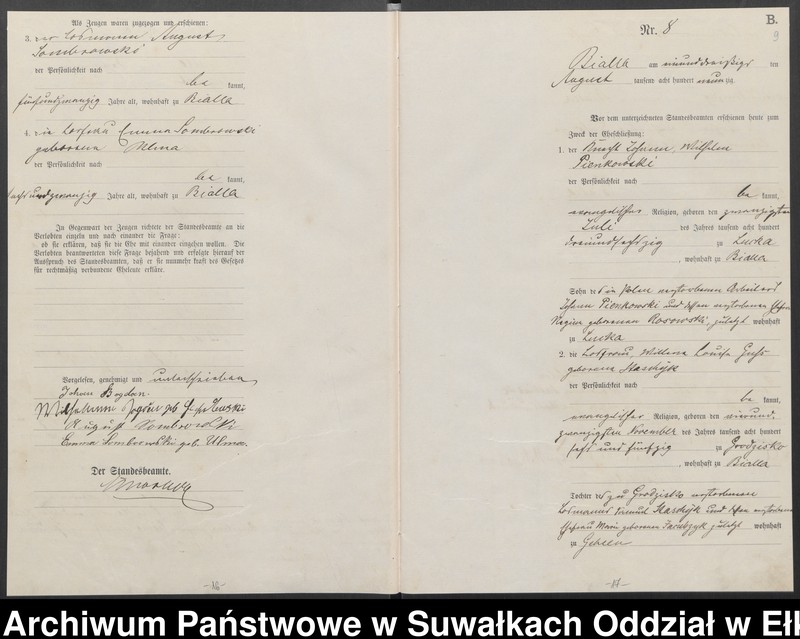 Als Zeugen waren zugezogen und erschienen:
3. der Losmann August
Sombrowski
der Persönlichkeit nach
be kannt,
fünfundzwanzig Jahre alt, wohnhaft zu Bialla
4. die Losfrau Emma Sombrowski
geborene Ulma
der Persönlichkeit nach
be kannt,
sechsundzwanzig Jahre alt, wohnhaft zu Bialla
In Gegenwart der Zeugen richtete der Standesbeamte an die
Verlobten einzeln und nach einander die Frage:
ob sie erklären, daß sie die Ehe mit einander eingehen wollen. Die
Verlobten beantworteten diese Frage bejahend und erfolgte hierauf der
Ausspruch des Standesbeamten, daß er sie nunmehr kraft des Gesetzes
für rechtmäßig verbundene Eheleute erkläre.
Vorgelesen, genehmigt und unterschrieben
Johann Bogdan
Wilhelmine Bogdan geb
August Sombrowski
Emma Sombrowski geb. Ulma.
Der Standesbeamte.
-16-
B.
9
Nr. 8
Bialla am einunddreißigsten
August tausend acht hundert neunzig.
Vor dem unterzeichneten Standesbeamten erschienen heute zum
Zweck der Eheschließung:
1. der Knecht Johann, Wilhelm
Pienkowski
der Persönlichkeit nach
be kannt,
evangelischer Religion, geboren den zwanzigsten
Juli des Jahres tausend acht hundert
dreiundsechszig zu Lucka
, wohnhaft zu Bialla
Sohn des in Polen verstorbenen Arbeiters
Johann Pienkowski und dessen verstorbenen Ehefrau
Regine geborenen Rosowski, zuletzt wohnhaft
zu Lucka
2. die Losfrau, Louise
geborene Skardzyk
der Persönlichkeit nach
be kannt,
evangelischer Religion, geboren den vierund-
zwanzigsten November des Jahres tausend acht hundert
sechs und fünfzig zu Grodzisko
, wohnhaft zu Bialla
Tochter des zu Grodzisko verstorbenen
Losmanns Samuel Skardzyk und dessen verstorbenen
Ehefrau Marie geborenen zuletzt wohnhaft
zu Gehsen
-17-
Archiwum Państwowe w Suwałkach Oddział w Eł